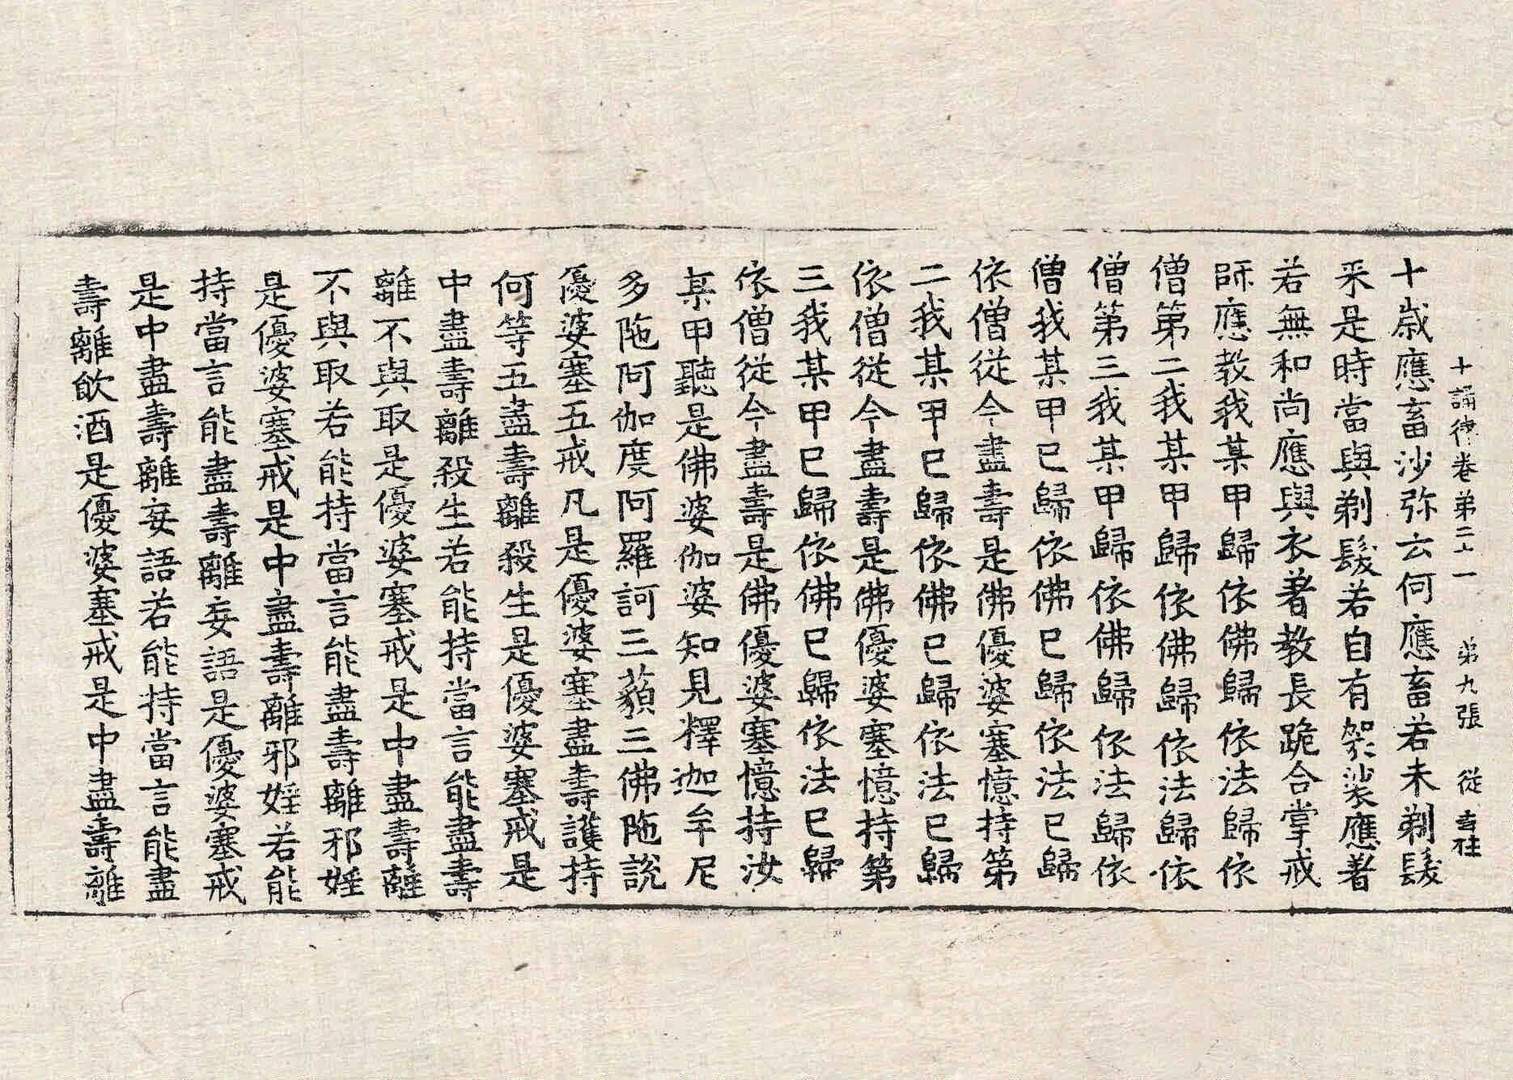 十誦律卷苐二十一　苐九張　從
十歲應畜沙弥云何應畜若未剃髮
来是時當與剃髮若自有袈裟應著
若無和尚應與衣著教長跪合掌戒
師應教我某甲歸依佛歸依法歸依
僧第二我某甲歸依佛歸依法歸依
僧第三我某甲歸依佛歸依法歸依
僧我某甲已歸依佛已歸依法已歸
依僧從今盡壽是佛優婆塞憶持第
二我某甲已歸依佛已歸依法已歸
依僧從今盡壽是佛優婆塞憶持第
三我某甲已歸依佛已歸依法已歸
依僧從今盡壽是佛優婆塞憶持汝
某甲聽是佛婆伽婆知見釋迦牟尼
多陁阿伽度阿羅訶三藐三佛陁說
優婆塞五戒凡是優婆塞盡壽護持
何等五盡壽離殺生是優婆塞戒是
中盡壽離殺生若能持當言能盡壽
離不與取是優婆塞戒是中盡壽離
不與取若能持當言能盡壽離邪婬
是優婆塞戒是中盡壽離邪婬若能
持當言能盡壽離妄語是優婆塞戒
是中盡壽離妄語若能持當言能盡
壽離飲酒是優婆塞戒是中盡壽離